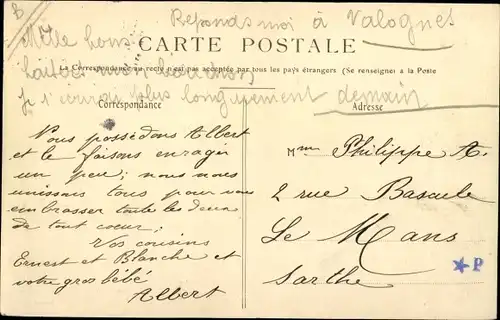 B
Reponds moi à Valognes
CARTE POSTALE
La Correspondance au recto n'est pas acceptée par tous les pays étrangers (Se renseigner à la Poste
Je t'écrirai plus longuement demain
Correspondance
Adresse
Vous possédons Albert
et le faisons enrager
un peu; nous nous
unissons tous pour vous
embrasser toute les deux
de tout coeur,
Vos cousins
Ernest et Blanche et
votre gros bébé
Albert
Mme Philippe A.
2 rue Bascule
Le Mans
Sarthe
P